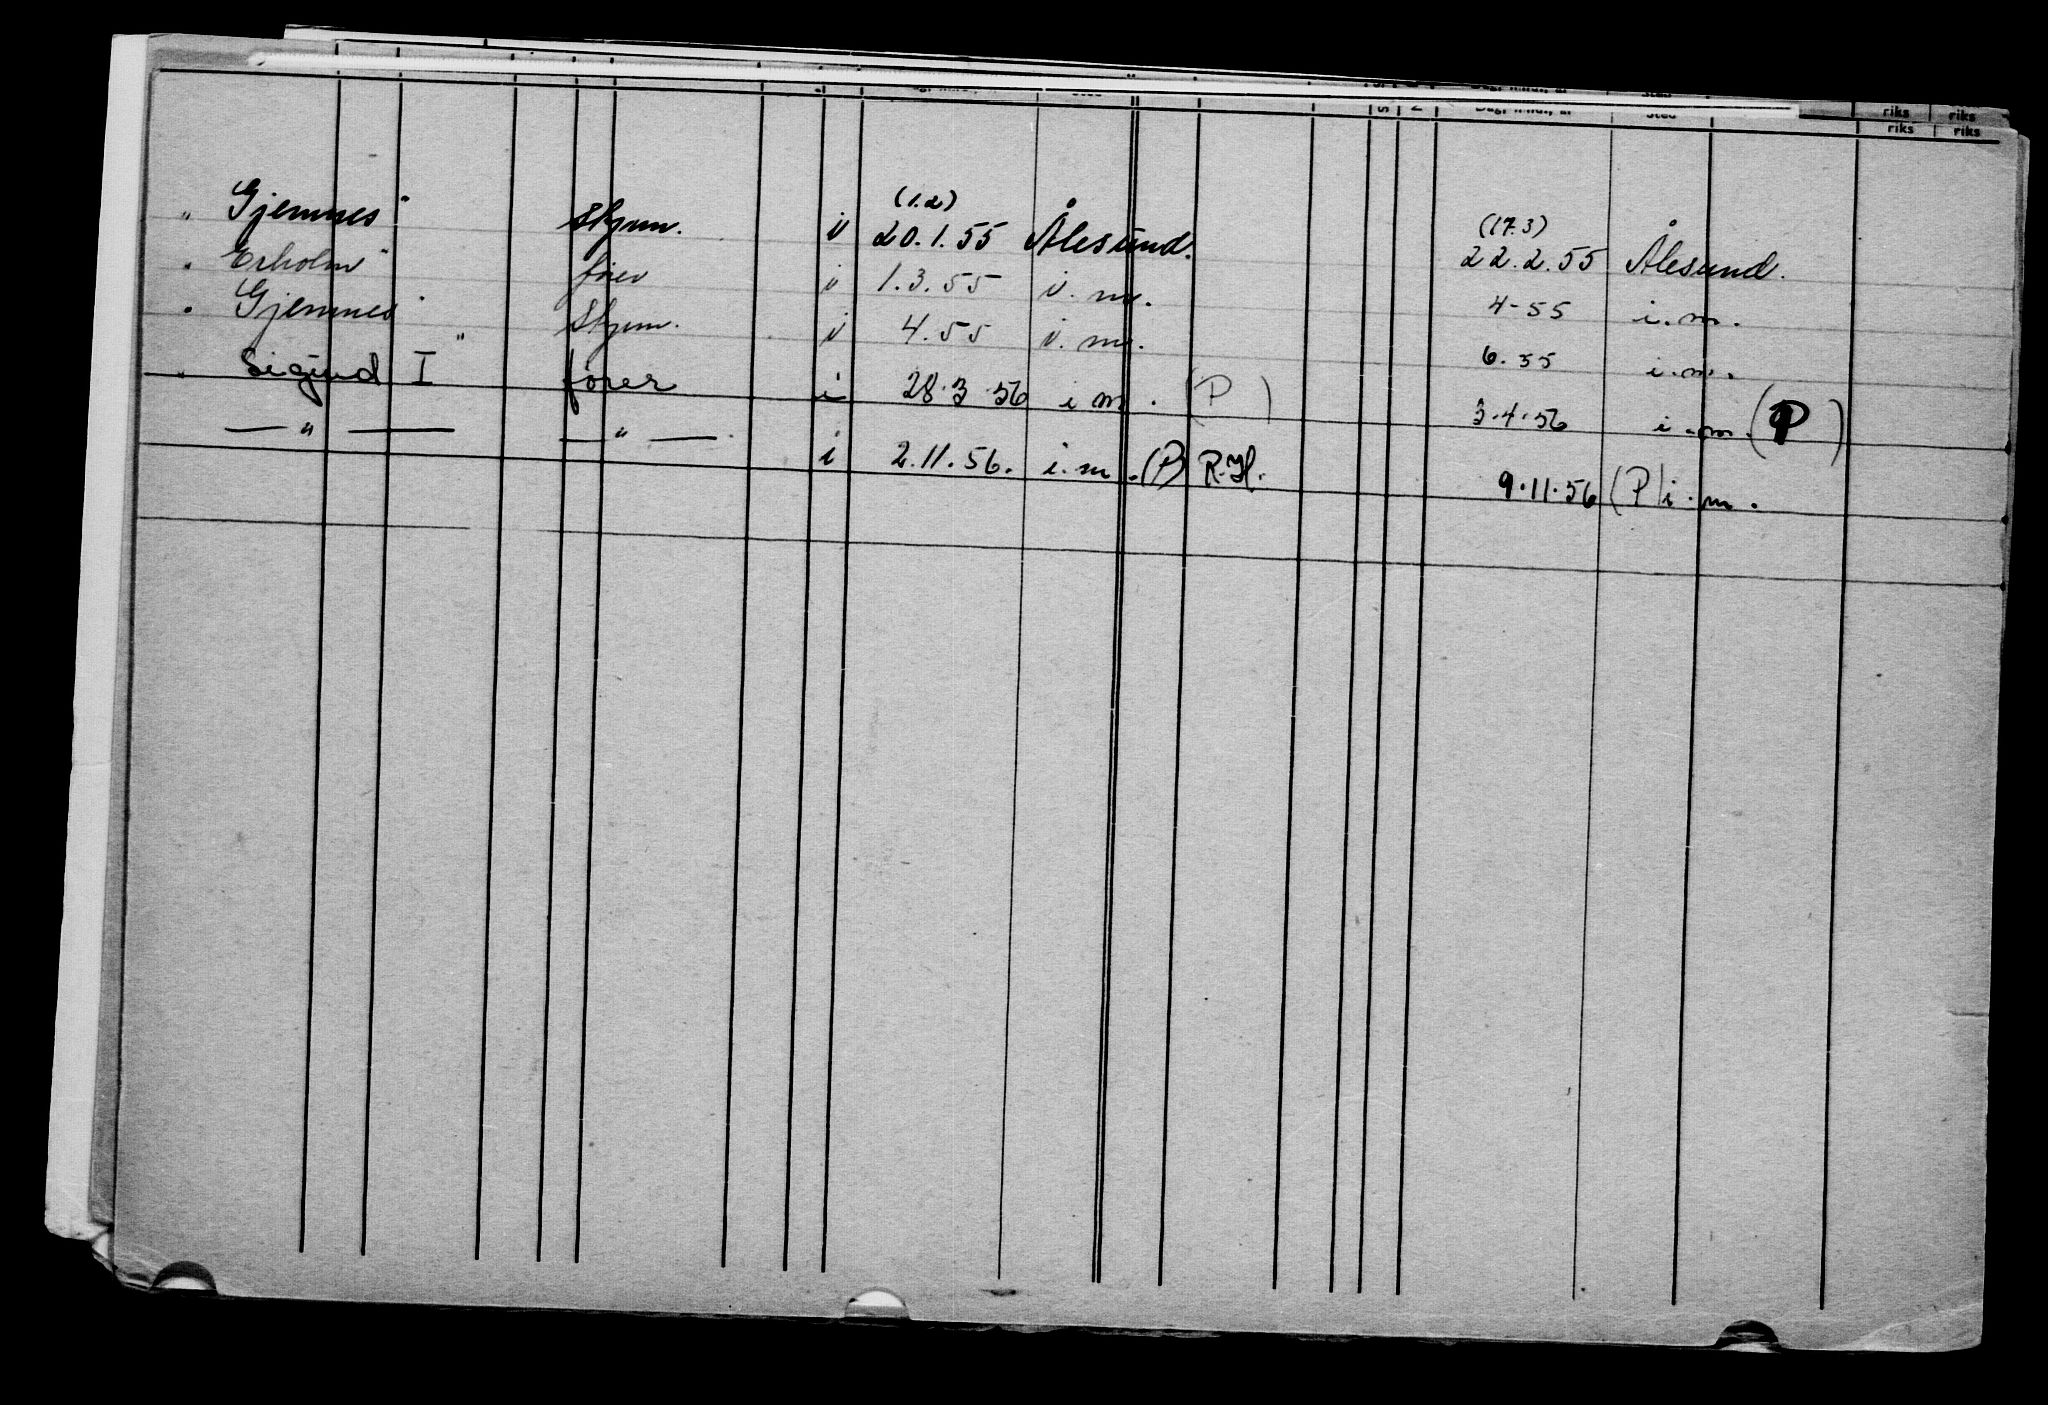 riks riks
riks riks
(1.2) (17.3)
" Gjemnes" Skjem. i 20.1.55 Ålesund. 22.2.55 Ålesund.
" Erholm" fører i 1.3.55 i. m. 4-55 i. m.
" Gjemnes" Skjem. i 4.55 i. m. 6.55 i. m.
" Sigurd I" fører i 28.3.56 i m. (P) 3.4.56 i. m. (P)
— " — — " — i 2.11.56. i. m. (P) R.H. 9.11.56 (P) i. m.